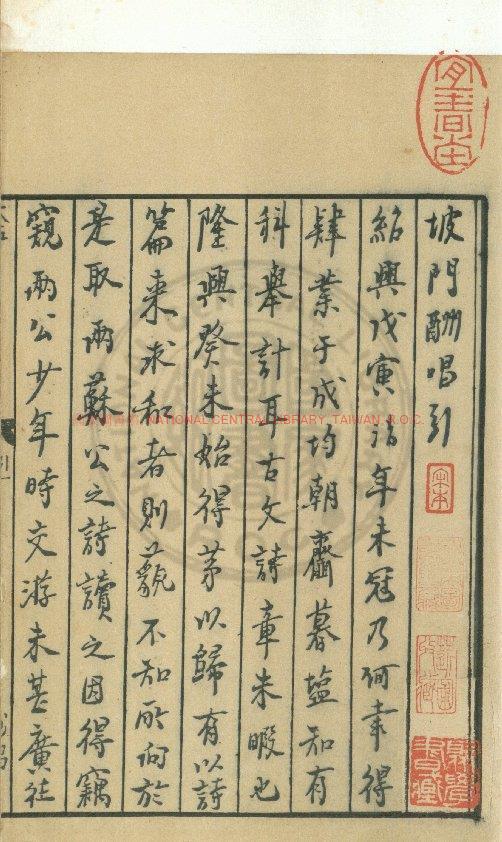 坡門酬唱引
紹興戊寅浩年未冠乃何幸得
肄業于成均朝齏暮塩知有
科舉計耳古文詩章未暇也
隆興癸未始得第以歸有以詩
篇来求和者則藐不知所向於
是取兩蘇公之詩讀之因得竊
窺兩公少年時交游未甚廣往
引一
宜書堂
宋本
NATIONAL CENTRAL LIBRARY, TAIWAN, R.O.C.